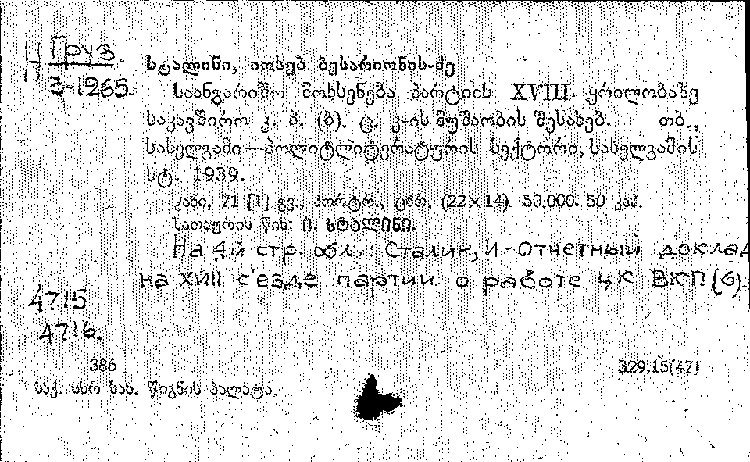 Груз
3-1265
სტალინი, იოსებ ბესარიონის-ძე
საანგარიშო მოხსენება პარტიის XVIII ყრილობაზე
საკავშირო კ. პ. (ბ). ც. კ-ის მუშაობის შესახებ. თბ.,
სახელგამი—პოლიტლიტერატურის სექტორი, სახელგამის
სტ. 1939.
კაბი, 71 [1] გვ., პორტრ., ცხრ. (22×14). 50.000. 50 კაპ.
სათაურის წინ: ი. სტალინი.
На 4й стр. обл. Сталин, И - Отчетный доклад
на XVIII съезде партии о работе ЦК ВКП(б).
4715
4716.
386
329.15(47)
საქ. სსრ სახ. წიგნის პალატა